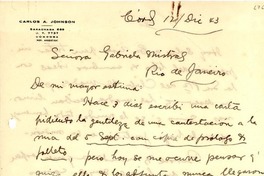 CARLOS A. JOHNSON
CORDOBA
Cord. 12/Dic 43
Señora Gabriela Mistral
Rio de Janeiro
De mi mayor estima:
Hace 3 dias escribi una carta
pidiendo la gentileza de una contestación a la
mia del 5 Sept. con copia de prólogo de
folleto, pero hoy se me ocurre pensar q'
nunca llegaron